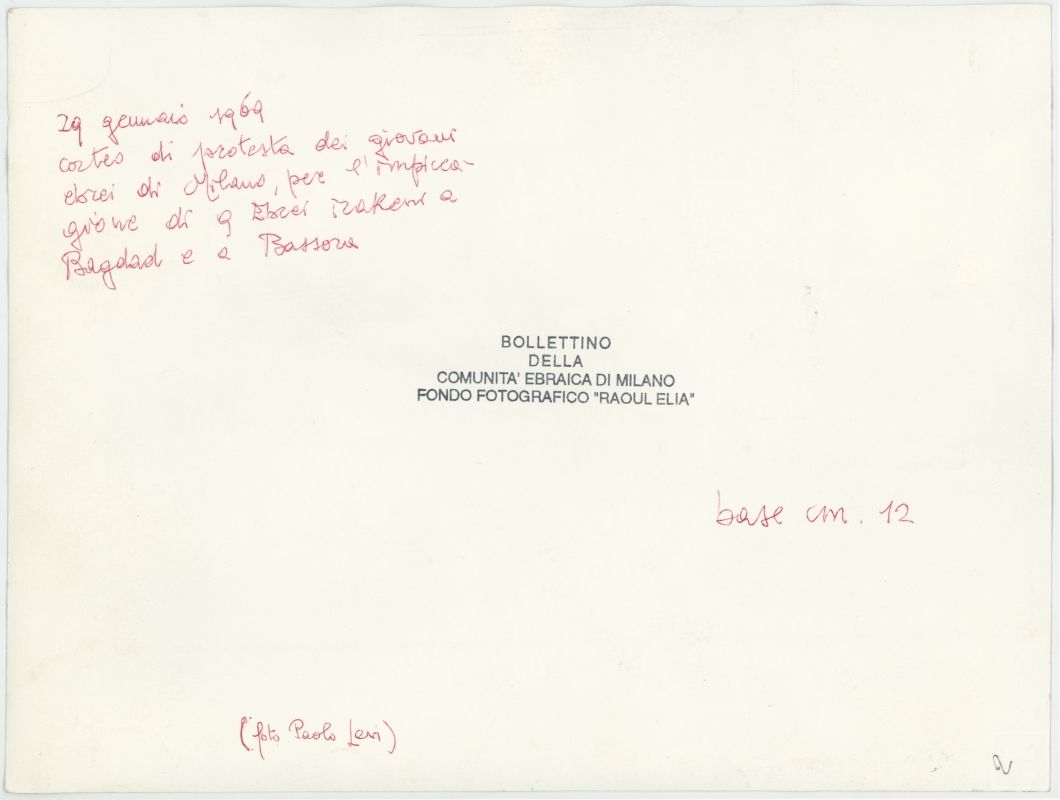 29 gennaio 1969
corteo di protesta dei giovani
ebrei di Milano, per l'impicca-
gione di 9 Ebrei irakeni a
Bagdad e a Bassora
BOLLETTINO
DELLA
COMUNITA' EBRAICA DI MILANO
FONDO FOTOGRAFICO "RAOUL ELIA"
base cm. 12
(foto Paolo Levi)